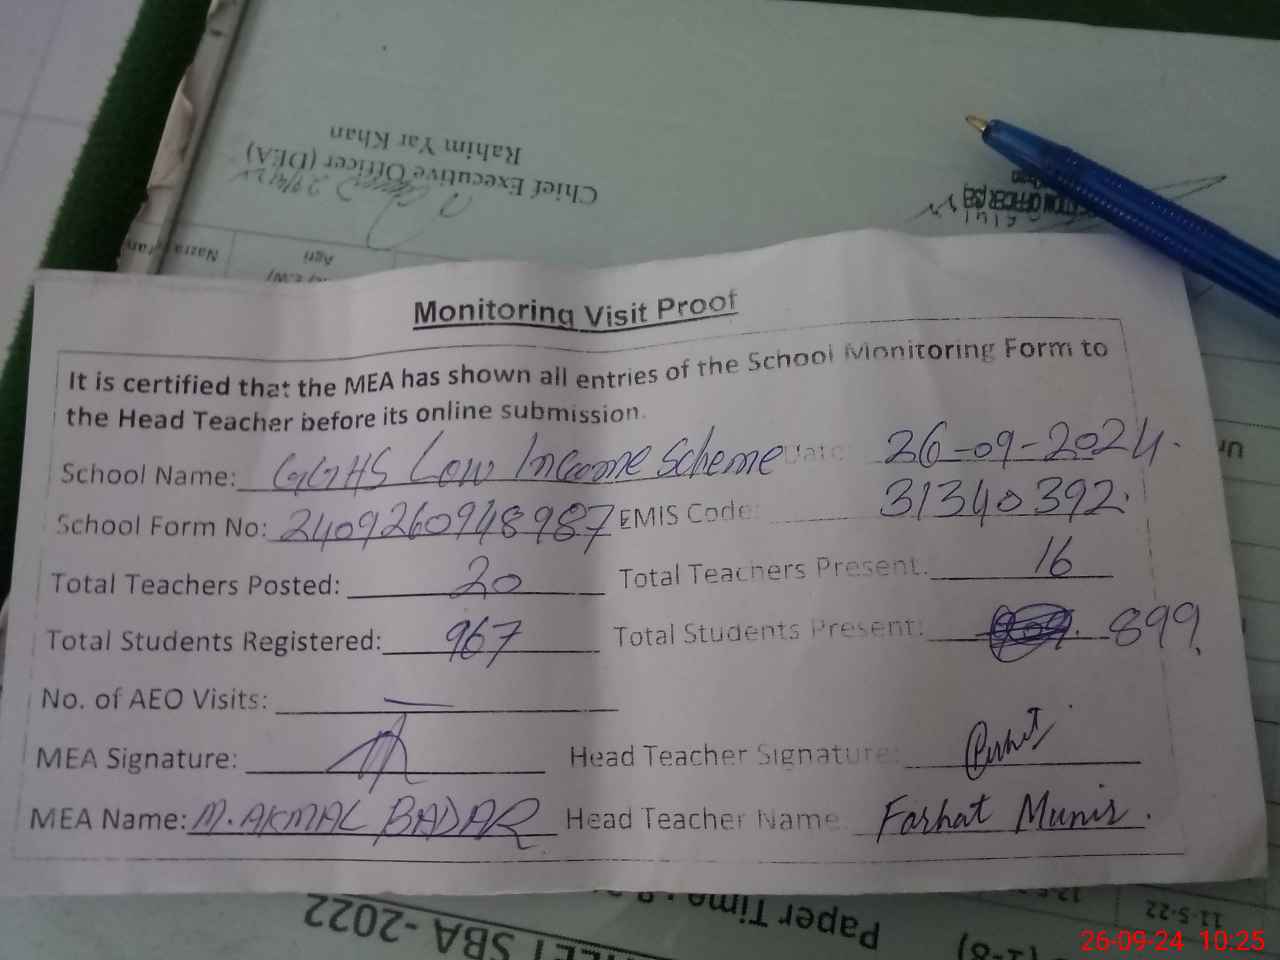 Chief Executive Officer (DEA)
Rahim Yar Khan
Agri
Monitoring Visit Proof
It is certified that the MEA has shown all entries of the School Monitoring Form to
the Head Teacher before its online submission.
School Name: GGHS Low Income Scheme Date: 26-09-2024.
School Form No: 2409260948987 EMIS Code: 31340392.
Total Teachers Posted: 20 Total Teachers Present: 16
Total Students Registered: 967 Total Students Present: 899.
No. of AEO Visits: —
MEA Signature: Head Teacher Signature:
MEA Name: M. AKMAL BADAR Head Teacher Name: Farhat Munir.
Paper Time : 8
SBA -2022
11-5-22
26-09-24 10:25